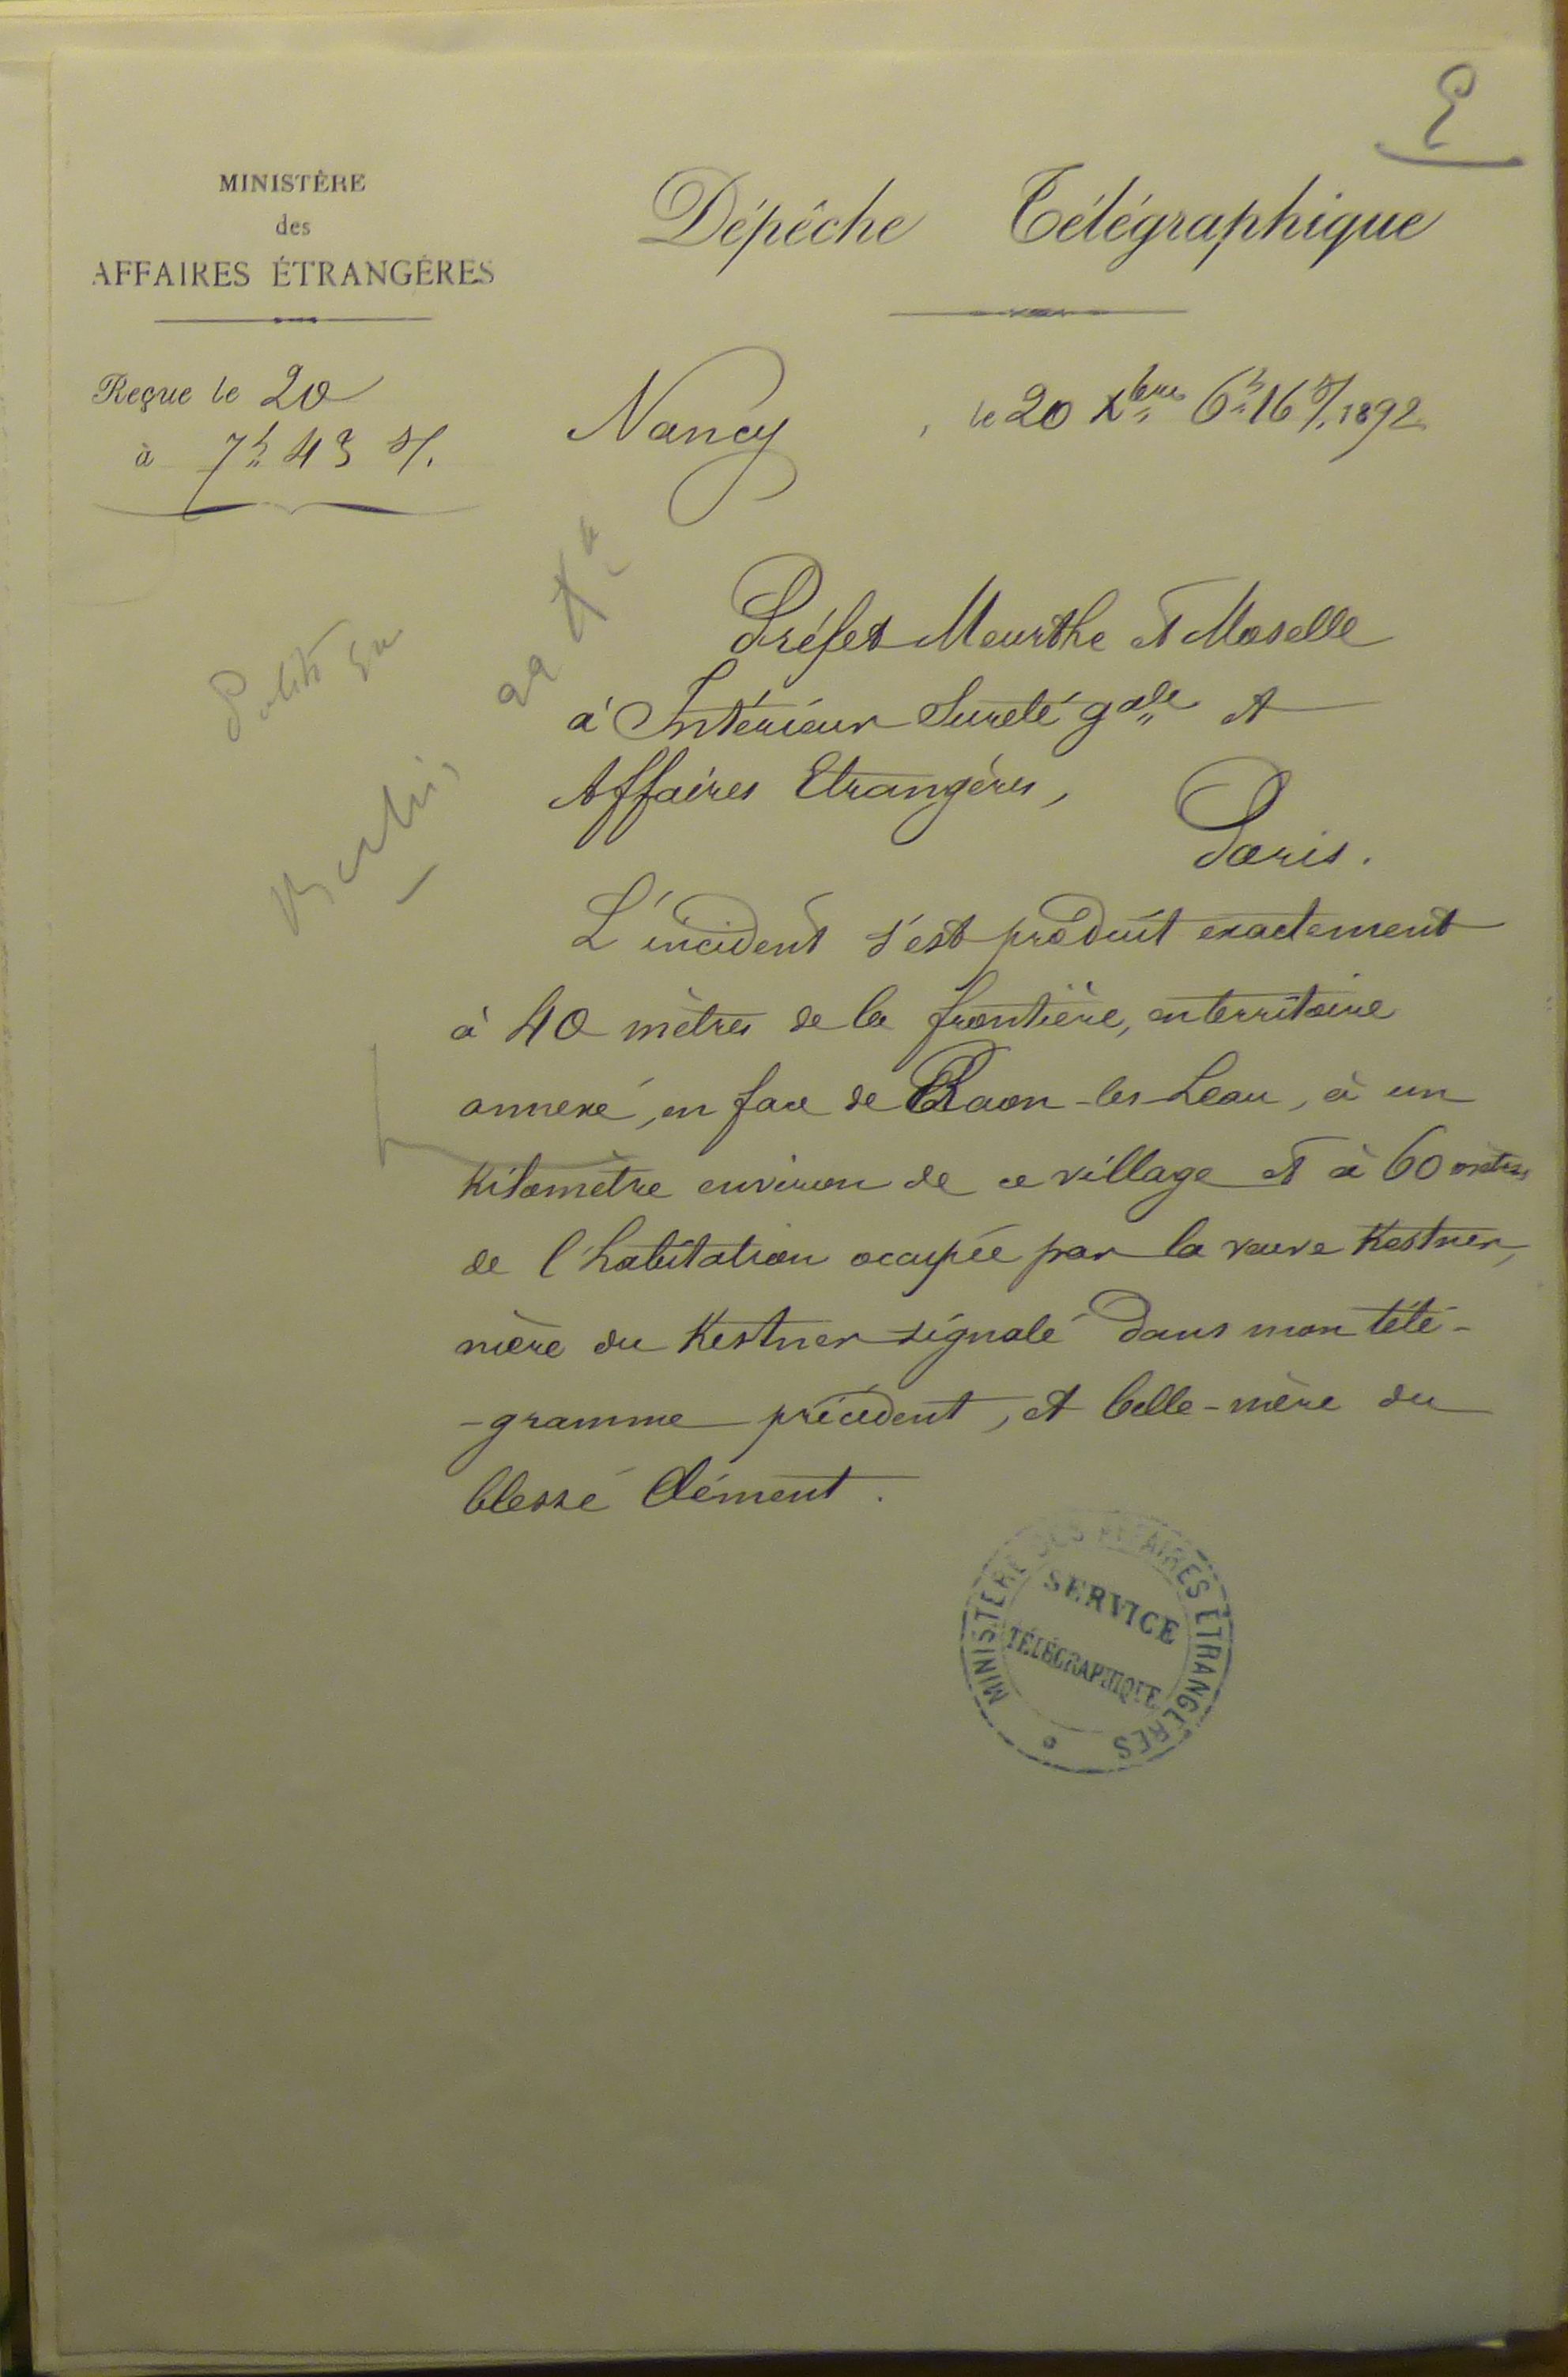 MINISTÈRE
des
AFFAIRES ÉTRANGÈRES
Dépêche Télégraphique
Reçue le 20
à 7h 43 s/.
Nancy, le 20 Xbre 6h 16 s/. 1892
Berlin, 22 Xe
Préfet Meurthe et Moselle
à Intérieur Sureté gale et
Affaires Etrangères,
Paris.
L'incident s'est produit exactement
à 40 mètres de la frontière, en territoire
annexé, en face de Raon-les-Leau, à un
kilomètre environ de ce village et à 60 mètres
de l'habitation occupée par la veuve Kestner,
mère du Kestner signalé dans mon télé-
-gramme précédent, et belle-mère du
blessé Clément.
MINISTÈRE DES AFFAIRES ÉTRANGÈRES
SERVICE
TÉLÉGRAPHIQUE